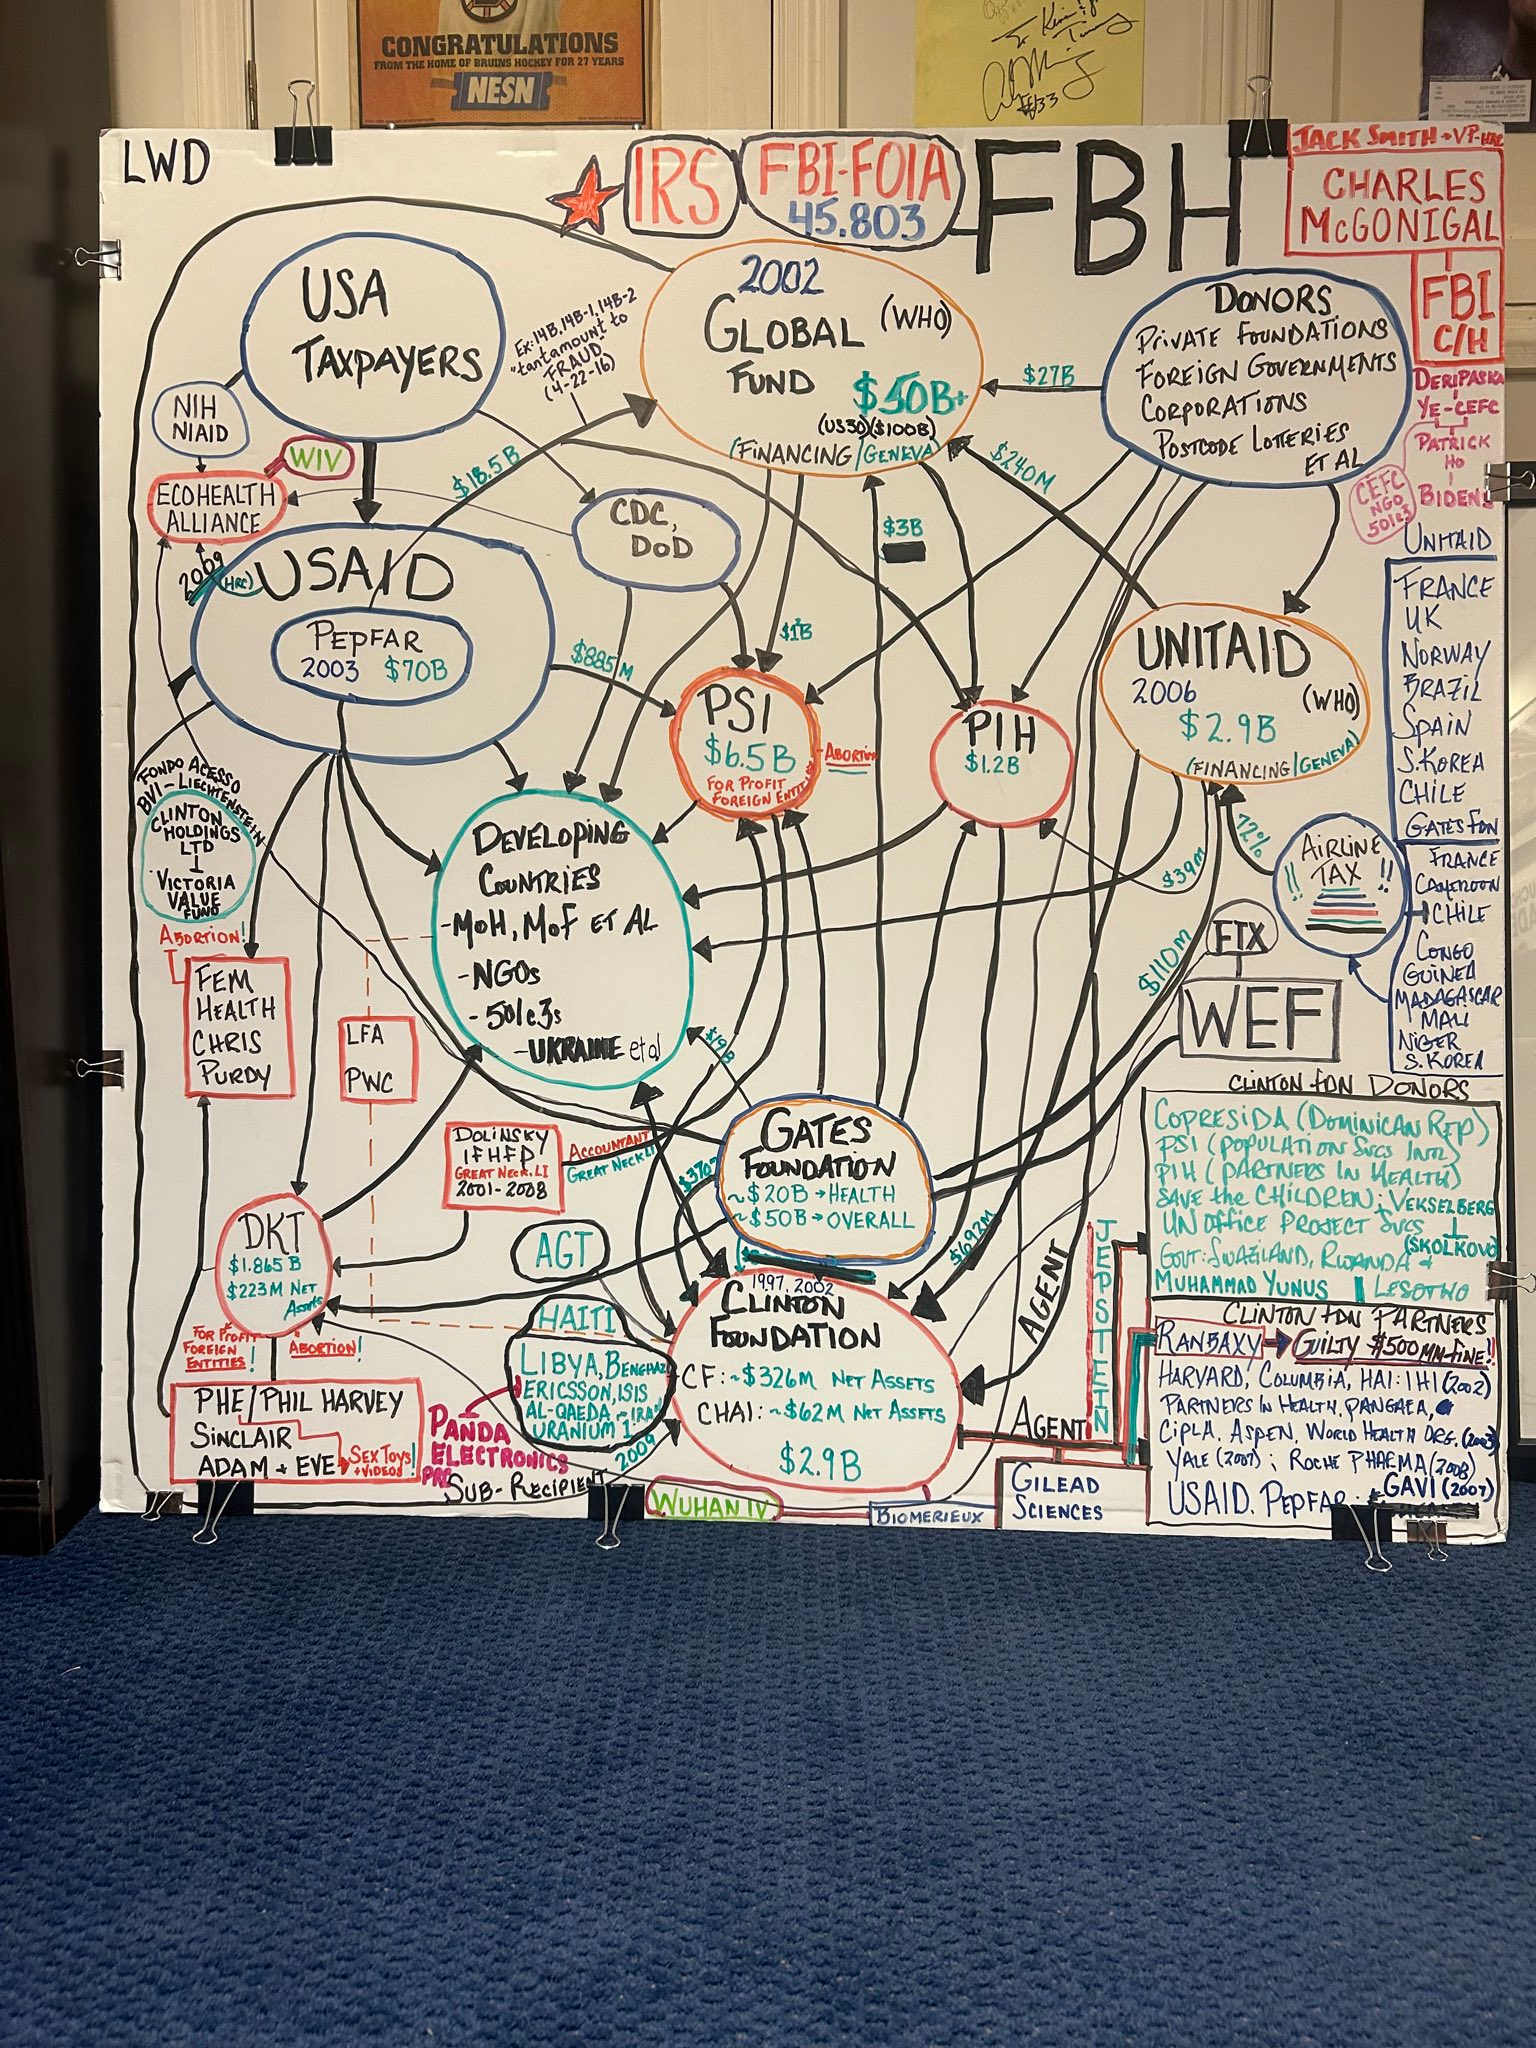 CONGRATULATIONS
FROM THE HOME OF BRUINS HOCKEY FOR 27 YEARS
NESN
LWD
IRS
FBI-FOIA
45.803
FBH
JACK SMITH → VP-
CHARLES
McGONIGAL
FBI
C/H
DERIPASKA
YE-CEFC
PATRICK
HO
BIDENS
CEFC
NGO
501c3
USA
TAXPAYERS
Ex: 14B, 14B-1, 14B-2
"tantamount to
FRAUD"
(4-22-16)
2002
GLOBAL (WHO)
FUND
$50B+
(US30) ($100B)
(FINANCING/GENEVA)
$27B
DONORS
PRIVATE FOUNDATIONS
FOREIGN GOVERNMENTS
CORPORATIONS
POSTCODE LOTTERIES
ET AL
NIH
NIAID
WIV
ECOHEALTH
ALLIANCE
$18.5B
$240M
CDC,
DOD
$3B
2009
(HRC)
USAID
PEPFAR
2003 $70B
$885M
$1B
PSI
$6.5B
FOR PROFIT
FOREIGN ENTITIES
-ABORTION
PIH
$1.2B
UNITAID
2006 (WHO)
$2.9B
(FINANCING/GENEVA)
UNITAID
FRANCE
UK
NORWAY
BRAZIL
SPAIN
S. KOREA
CHILE
GATES FDN
FRANCE
CAMEROON
CHILE
CONGO
GUINEA
MADAGASCAR
MALI
NIGER
S. KOREA
FONDO ACESSO
BVI-LIECHTENSTEIN
CLINTON
HOLDINGS
LTD
VICTORIA
VALUE
FUND
ABORTION!
FEM
HEALTH
CHRIS
PURDY
DEVELOPING
COUNTRIES
-MOH, MOF ET AL
-NGOs
-501c3s
-UKRAINE et al
LFA
PWC
72%
!! AIRLINE
TAX !!
$39M
FTX
WEF
$110M
$19B
DOLINSKY
IFHFP
GREAT NECK, LI
2001-2008
ACCOUNTANT
GREAT NECK LI
GATES
FOUNDATION
~$20B → HEALTH
~$50B → OVERALL
$692M
CLINTON FDN DONORS
COPRESIDA (DOMINICAN REP)
PSI (POPULATION SVCS INTL)
PIH (PARTNERS IN HEALTH)
SAVE the CHILDREN; VEKSELBERG
UN OFFICE PROJECT SVCS
(SKOLKOVO)
GOVT: SWAZILAND, RWANDA +
MUHAMMAD YUNUS LESOTHO
CLINTON FDN PARTNERS
RANBAXY → GUILTY $500MM-FINE!!
HARVARD, COLUMBIA, HAI: IHI (2002)
PARTNERS IN HEALTH, PANGAEA,
CIPLA, ASPEN, WORLD HEALTH ORG. (2003)
YALE (2007); ROCHE PHARMA (2008)
USAID. PEPFAR. GAVI (2007)
DKT
$1.865B
$223M NET
Assets
FOR PROFIT
FOREIGN
ENTITIES!
ABORTION!
PHE/PHIL HARVEY
SINCLAIR
ADAM + EVE
SEX TOYS!
+VIDEOS
AGT
HAITI
LIBYA, BENGHAZI
ERICSSON, ISIS
AL-QAEDA, -"IRA"
URANIUM 1
PANDA
ELECTRONICS
PRC
SUB-RECIPIENT
2009
1997, 2002
CLINTON
FOUNDATION
CF: ~$326M NET ASSETS
CHAI: ~$62M NET ASSETS
$2.9B
AGENT
AGENT
JEPSTEIN
WUHAN IV
BIOMERIEUX
GILEAD
SCIENCES